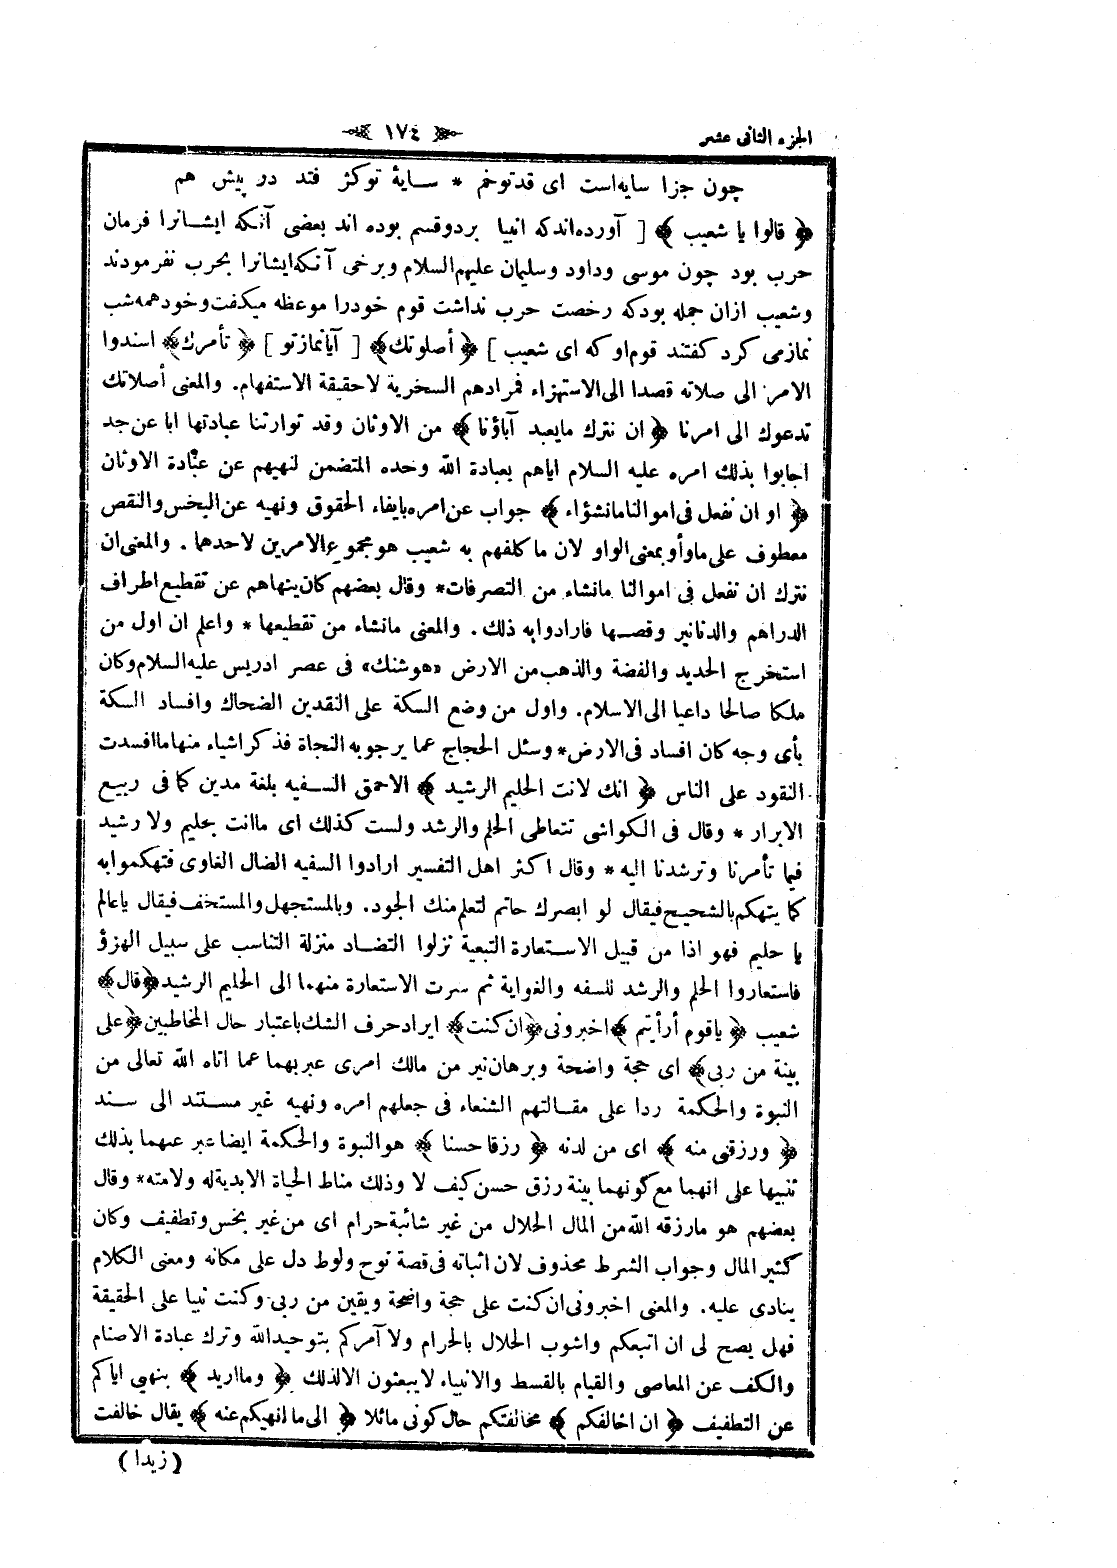 الجزء الثانى عشر
١٧٤
چون جزا سايه‌است اى قدتوخم * سايهٔ توكژ فتد در پيش هم
﴿ قالوا يا شعيب ﴾ [ آورده‌اندكه انبيا بردوقسم بوده اند بعضى آنكه ايشانرا فرمان
حرب بود چون موسى وداود وسليمان عليهم السلام وبرخى آنكه‌ايشانرا بحرب نفرمودند
وشعيب ازان جمله بودكه رخصت حرب نداشت قوم خودرا موعظه ميكفت وخودهمه‌شب
نمازمى كرد كفتند قوم‌او كه اى شعيب ] ﴿ أصلوتك﴾ [ آيانمازتو ] ﴿ تأمرك﴾ اسندوا
الامر الى صلاته قصدا الى الاستهزاء فمرادهم السخرية لاحقيقة الاستفهام. والمعنى أصلاتك
تدعوك الى امرنا ﴿ ان نترك مايعبد آباؤنا ﴾ من الاوثان وقد توارثنا عبادتها ابا عن جد
اجابوا بذلك امره عليه السلام اياهم بعبادة الله وحده المتضمن لنهيهم عن عبادة الاوثان
﴿ او ان نفعل فى اموالنا مانشؤاء ﴾ جواب عن امره بايفاء الحقوق ونهيه عن البخس والنقص
معطوف على ما وأو بمعنى الواو لان ما كلفهم به شعيب هو مجموع الامرين لاحدهما . والمعنى ان
نترك ان نفعل فى اموالنا مانشاء من التصرفات* وقال بعضهم كان ينهاهم عن تقطيع اطراف
الدراهم والدنانير وقصها فارادوابه ذلك. والمعنى مانشاء من تقطيعها * واعلم ان اول من
استخرج الحديد والفضة والذهب من الارض «هوشنك» فى عصر ادريس عليه السلام وكان
ملكا صالحا داعيا الى الاسلام. واول من وضع السكة على النقدين الضحاك وافساد السكة
بأى وجه كان افساد فى الارض* وسئل الحجاج عما يرجوبه النجاة فذكر اشياء منها ما افسدت
النقود على الناس ﴿ انك لانت الحليم الرشيد ﴾ الاحمق السفيه بلغة مدين كما فى ربيع
الابرار * وقال فى الكواشى تتعاطى الحلم والرشد ولست كذلك اى ماانت بحليم ولا رشيد
فيما تأمرنا وترشدنا اليه * وقال اكثر اهل التفسير ارادوا السفيه الضال الغاوى فتهكموابه
كما يتهكم بالشحيح فيقال لو ابصرك حاتم لتعلم منك الجود. وبالمستجهل والمستخف فيقال ياعالم
يا حليم فهو اذا من قبيل الاستعارة التبعية نزلوا التضاد منزلة التناسب على سبيل الهزؤ
فاستعاروا الحلم والرشد للسفه والغواية ثم سرت الاستعارة منهما الى الحليم الرشيد﴿قال﴾
شعيب ﴿ ياقوم أرأيتم ﴾ اخبرونى ﴿ان كنت﴾ ايراد حرف الشك باعتبار حال المخاطبين ﴿على
بينة من ربى﴾ اى حجة واضحة وبرهان نير من مالك امرى عبر بهما عما اتاه الله تعالى من
النبوة والحكمة ردا على مقالتهم الشنعاء فى جعلهم امره ونهيه غير مستند الى سند
﴿ ورزقنى منه ﴾ اى من لدنه ﴿ رزقا حسنا ﴾ هو النبوة والحكمة ايضا عبر عنهما بذلك
تنبيها على انهما مع كونهما بينة رزق حسن كيف لا وذلك مناط الحياة الابدية له ولامته* وقال
بعضهم هو مارزقه الله من المال الحلال من غير شائبة حرام اى من غير بخس وتطفيف وكان
كثير المال وجواب الشرط محذوف لان اثباته فى قصة نوح ولوط دل على مكانه ومعنى الكلام
ينادى عليه. والمعنى اخبرونى ان كنت على حجة واضحة ويقين من ربى وكنت نبيا على الحقيقة
فهل يصح لى ان اتبعكم واشوب الحلال بالحرام ولا آمركم بتوحيد الله وترك عبادة الاصنام
والكف عن المعاصى والقيام بالقسط والانبياء لايبعثون الا لذلك ﴿ ومااريد ﴾ بنهيى اياكم
عن التطفيف ﴿ ان اخالفكم ﴾ مخالفتكم حال كونى مائلا ﴿ الى ما انهيكم عنه ﴾ يقال خالفت
( زيدا )